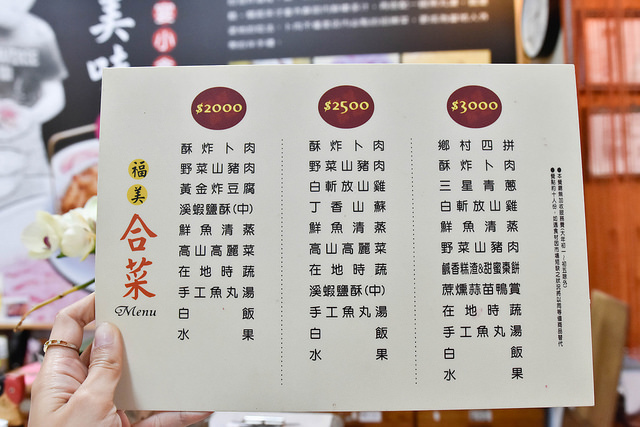 美味
福美
合菜
Menu
$2000
酥炸卜肉
野菜山豬肉
黃金炸豆腐
溪蝦鹽酥(中)
鮮魚清蒸
高山高麗菜
在地時蔬
手工魚丸湯
白飯
水果
$2500
酥炸卜肉
野菜山豬肉
白斬放山雞
丁香山蘇
鮮魚清蒸
高山高麗菜
在地時蔬
溪蝦鹽酥(中)
手工魚丸湯
白飯
水果
$3000
鄉村四拼
酥炸卜肉
三星青蔥
白斬放山雞
鮮魚清蒸
野菜山豬肉
鹹香糕渣&甜蜜棗餅
蔗燻蒜苗鴨賞
在地時蔬
手工魚丸湯
白飯
水果